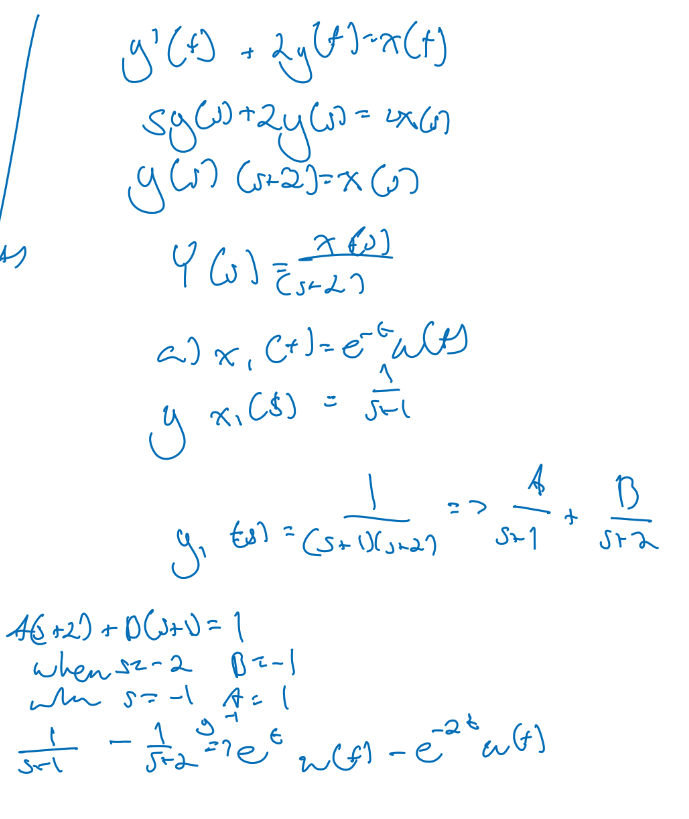 y'(t) + 2y(t) = x(t)
sy(s) + 2y(s) = x(s)
y(s) (s+2) = x(s)
Y(s) = x(s) / (s+2)
a) x₁(t) = e^-t u(t)
y x₁(s) = 1 / s+1
y₁(s) = 1 / (s+1)(s+2) => A / s+1 + B / s+2
A(s+2) + B(s+1) = 1
when s=-2 B=-1
when s=-1 A=1
1 / s+1 - 1 / s+2 => e^t u(t) - e^-2t u(t)